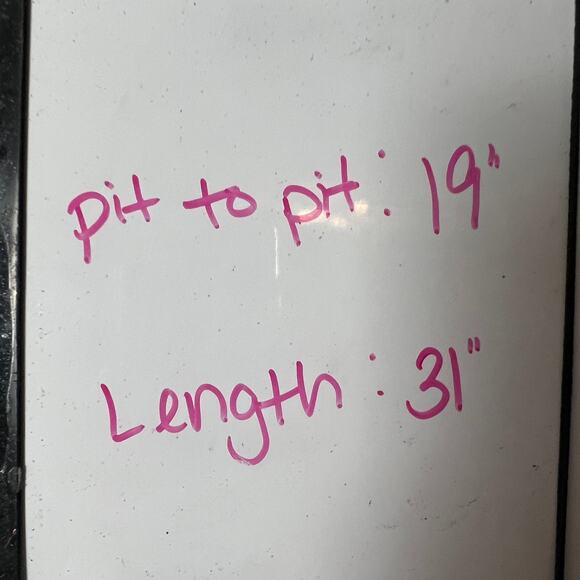 pit to pit: 19"
Length: 31"